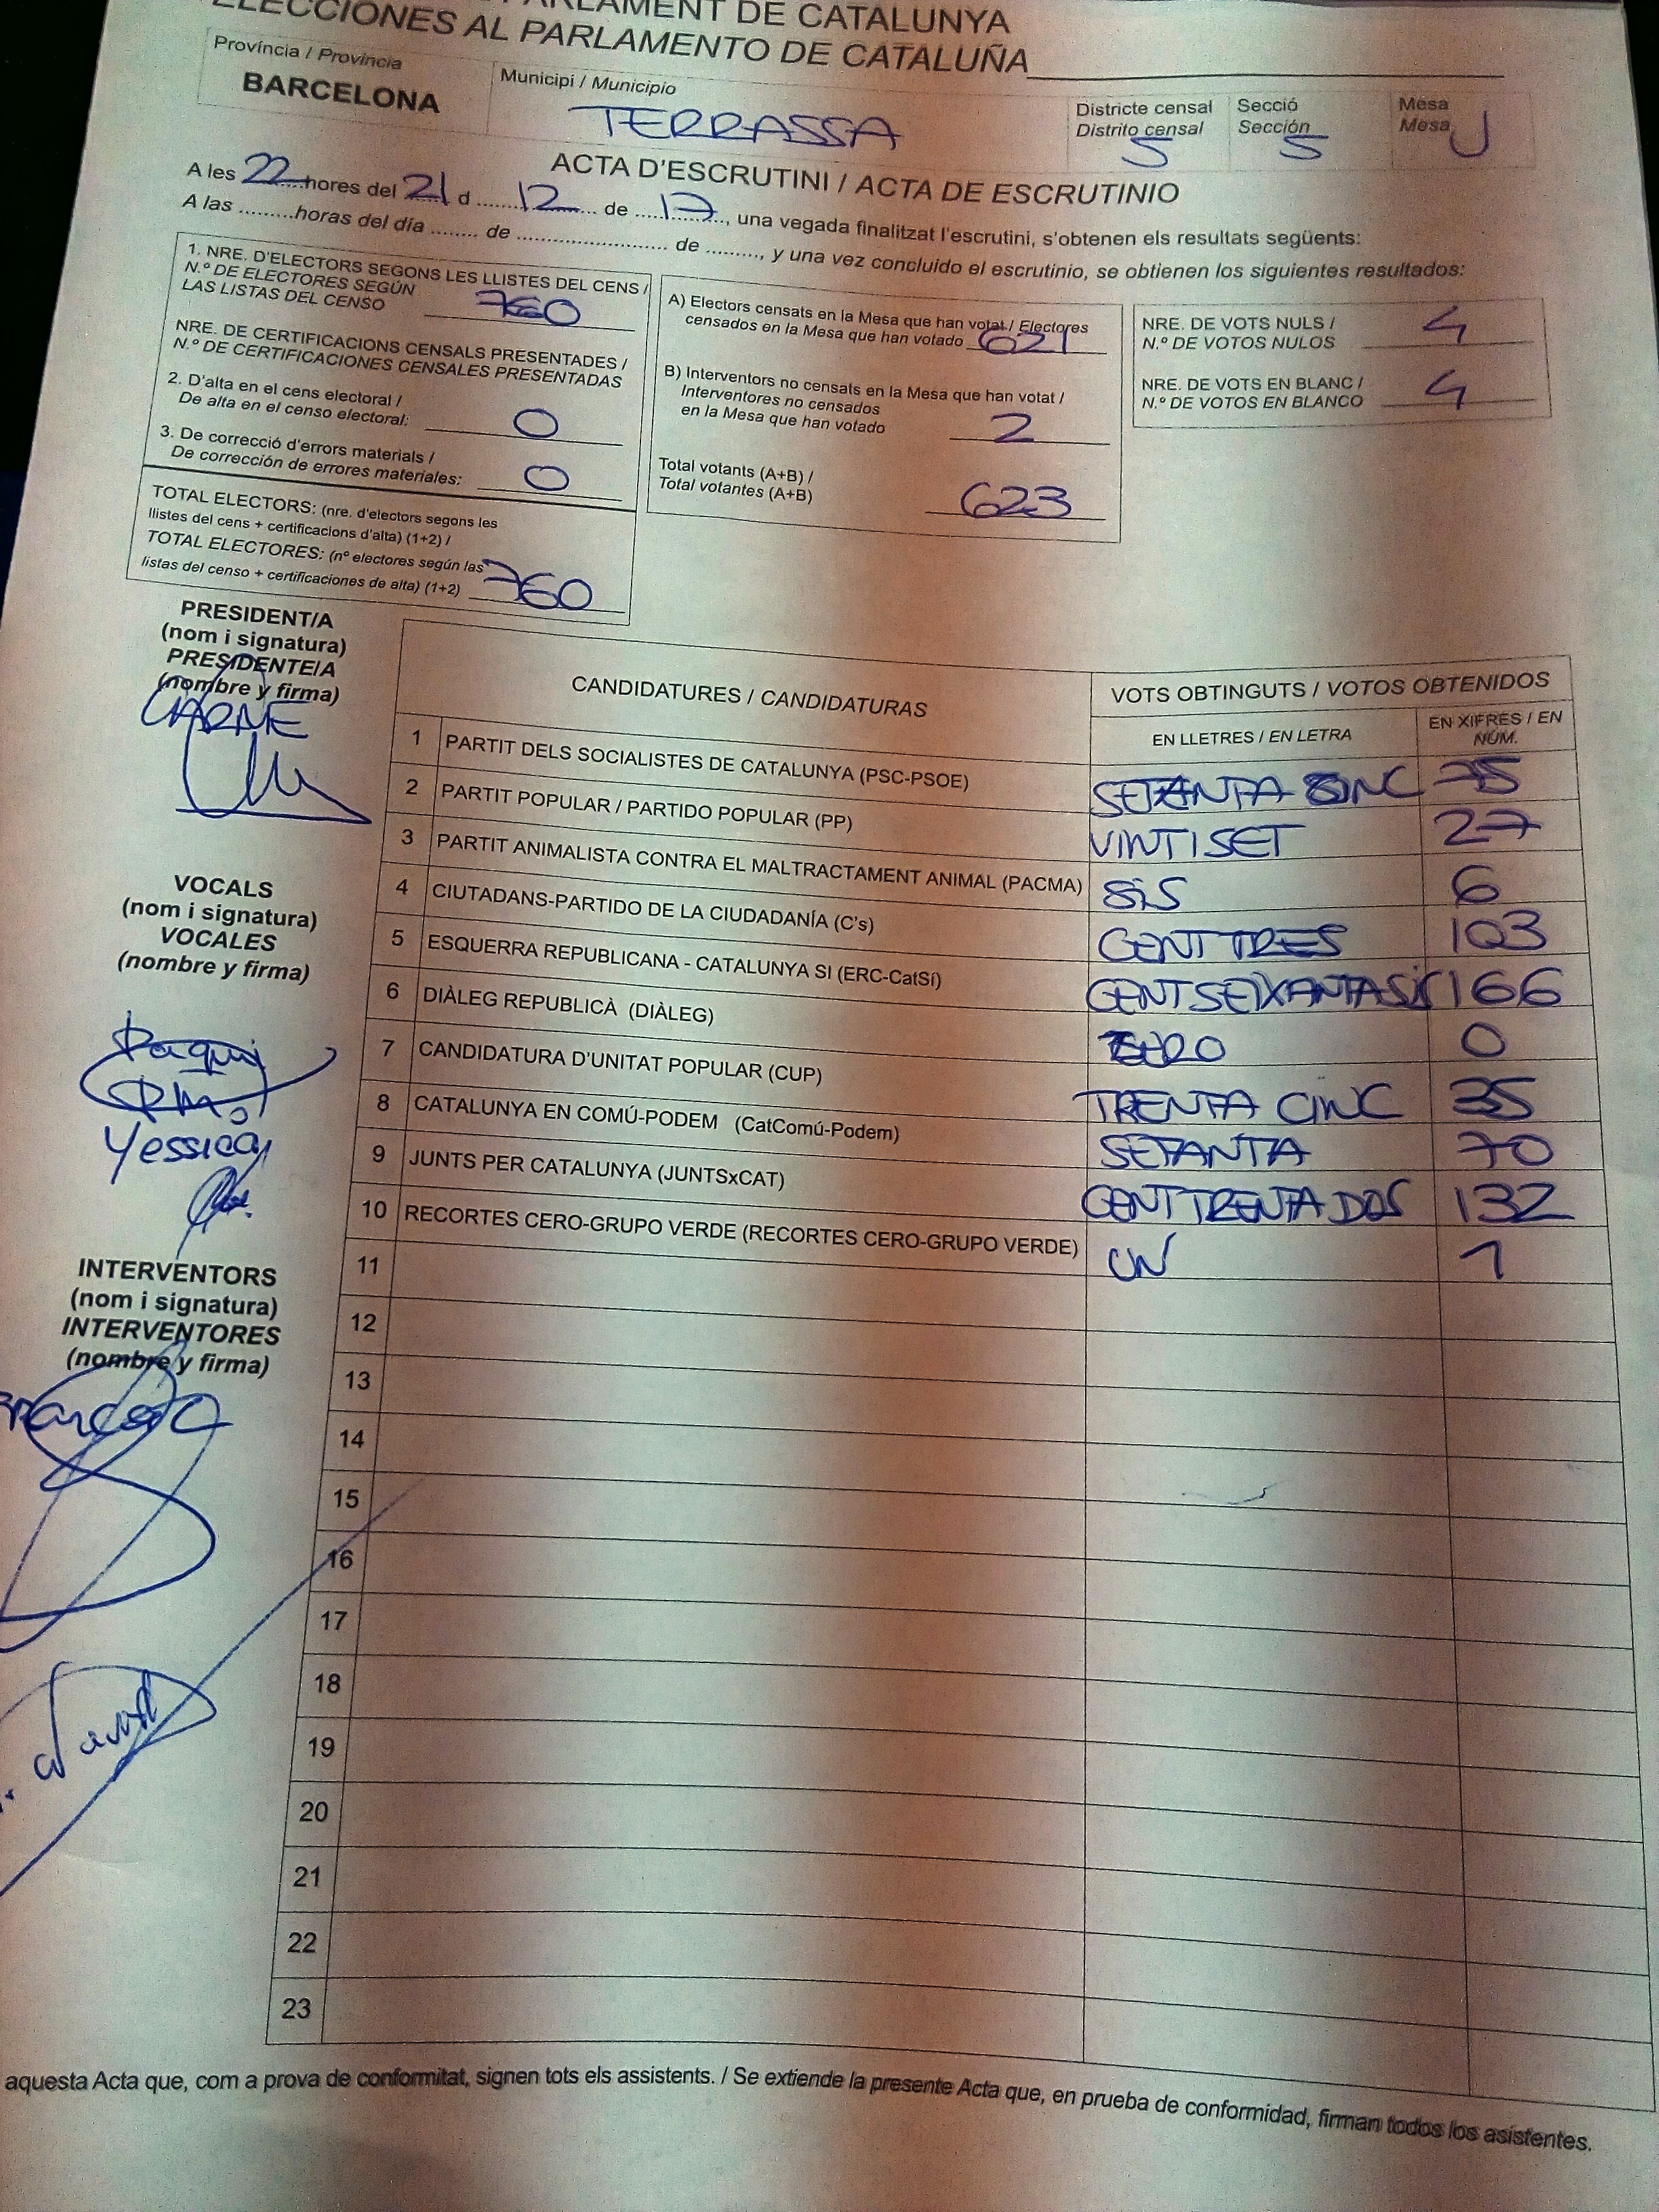 PARLAMENT DE CATALUNYA
ELECCIONES AL PARLAMENTO DE CATALUÑA
Província / Provincia
BARCELONA
Municipi / Municipio
TERRASSA
Districte censal
Distrito censal
5
Secció
Sección
5
Mesa
Mesa
U
ACTA D'ESCRUTINI / ACTA DE ESCRUTINIO
A les 22 hores del 21 d 12 de 17, una vegada finalitzat l'escrutini, s'obtenen els resultats següents:
A las .........horas del día ........ de ............................ de .........., y una vez concluido el escrutinio, se obtienen los siguientes resultados:
1. NRE. D'ELECTORS SEGONS LES LLISTES DEL CENS /
N.º DE ELECTORES SEGÚN
LAS LISTAS DEL CENSO 760
NRE. DE CERTIFICACIONS CENSALS PRESENTADES /
N.º DE CERTIFICACIONES CENSALES PRESENTADAS
2. D'alta en el cens electoral /
De alta en el censo electoral: 0
3. De correcció d'errors materials /
De corrección de errores materiales: 0
TOTAL ELECTORS: (nre. d'electors segons les
llistes del cens + certificacions d'alta) (1+2) /
TOTAL ELECTORES: (nº electores según las
listas del censo + certificaciones de alta) (1+2) 760
A) Electors censats en la Mesa que han votat / Electores
censados en la Mesa que han votado 621
B) Interventors no censats en la Mesa que han votat /
Interventores no censados
en la Mesa que han votado 2
Total votants (A+B) /
Total votantes (A+B) 623
NRE. DE VOTS NULS /
N.º DE VOTOS NULOS 4
NRE. DE VOTS EN BLANC /
N.º DE VOTOS EN BLANCO 4
PRESIDENT/A
(nom i signatura)
PRESIDENTE/A
(nombre y firma)
CARME
VOCALS
(nom i signatura)
VOCALES
(nombre y firma)
Paqui
Yessica
INTERVENTORS
(nom i signatura)
INTERVENTORES
(nombre y firma)
CANDIDATURES / CANDIDATURAS
VOTS OBTINGUTS / VOTOS OBTENIDOS
EN LLETRES / EN LETRA
EN XIFRES / EN
NÚM.
1 PARTIT DELS SOCIALISTES DE CATALUNYA (PSC-PSOE) SETANTA CINC 75
2 PARTIT POPULAR / PARTIDO POPULAR (PP) VINTISET 27
3 PARTIT ANIMALISTA CONTRA EL MALTRACTAMENT ANIMAL (PACMA) SIS 6
4 CIUTADANS-PARTIDO DE LA CIUDADANÍA (C's) CENT TRES 103
5 ESQUERRA REPUBLICANA - CATALUNYA SI (ERC-CatSí) CENT SEIXANTA SIS 166
6 DIÀLEG REPUBLICÀ (DIÀLEG) ZERO 0
7 CANDIDATURA D'UNITAT POPULAR (CUP) TRENTA CINC 35
8 CATALUNYA EN COMÚ-PODEM (CatComú-Podem) SETANTA 70
9 JUNTS PER CATALUNYA (JUNTSxCAT) CENT TRENTA DOS 132
10 RECORTES CERO-GRUPO VERDE (RECORTES CERO-GRUPO VERDE) UN 1
11
12
13
14
15
16
17
18
19
20
21
22
23
aquesta Acta que, com a prova de conformitat, signen tots els assistents. / Se extiende la presente Acta que, en prueba de conformidad, firman todos los asistentes.